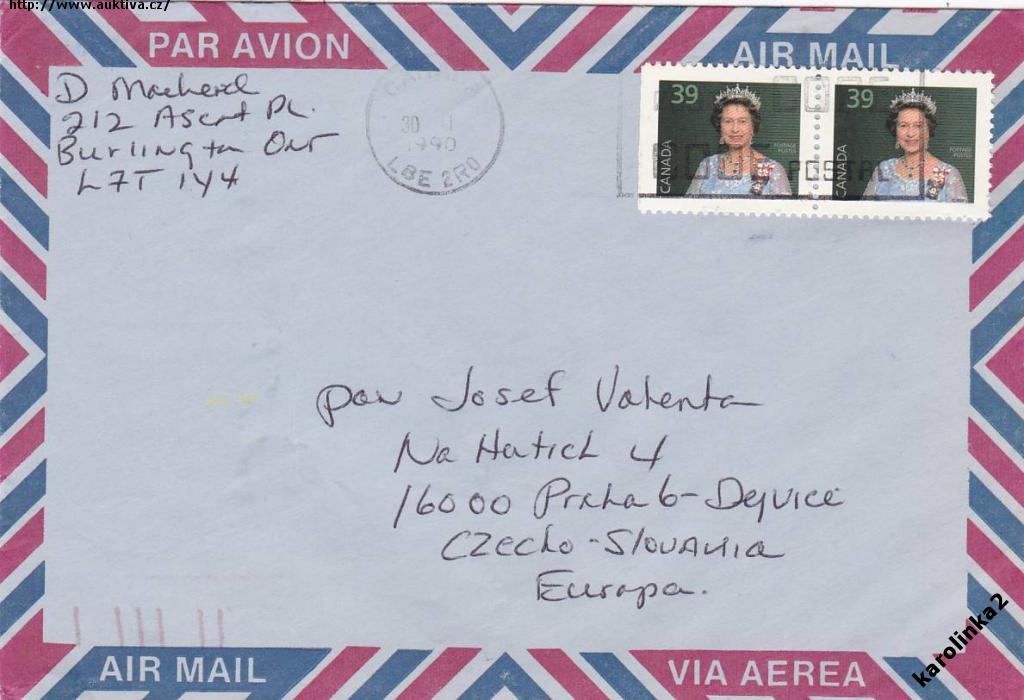 http://www.auktiva.cz/
PAR AVION
AIR MAIL
D
212 Ascot Pl.
Burlington Ont
L7T 1Y4
30 1
1990
L8E 2R0
39
CANADA
POSTAGE
POSTES
39
CANADA
POSTAGE
POSTES
CODE
POSTAL
pan Josef Valenta
Na Hutich 4
16000 Praha 6-Dejvice
Czecho-Slovakia
Europa.
AIR MAIL
VIA AEREA
karolinka2